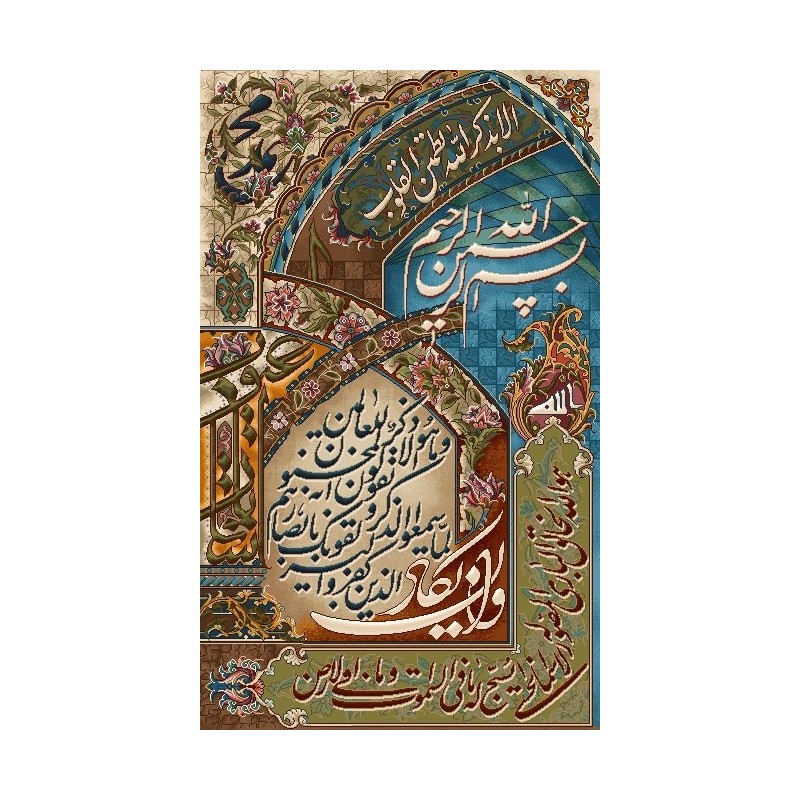 محمد
الا بذکر الله تطمئن القلوب
بسم الله الرحمن الرحیم
و ان یکاد
الذین کفروا لیزلقونک بابصارهم
لما سمعوا الذکر و یقولون انه لمجنون
و ما هو الا ذکر للعالمین
هو الله الخالق الباری المصور له الاسماء الحسنی
یسبح له ما فی السموات و الارض